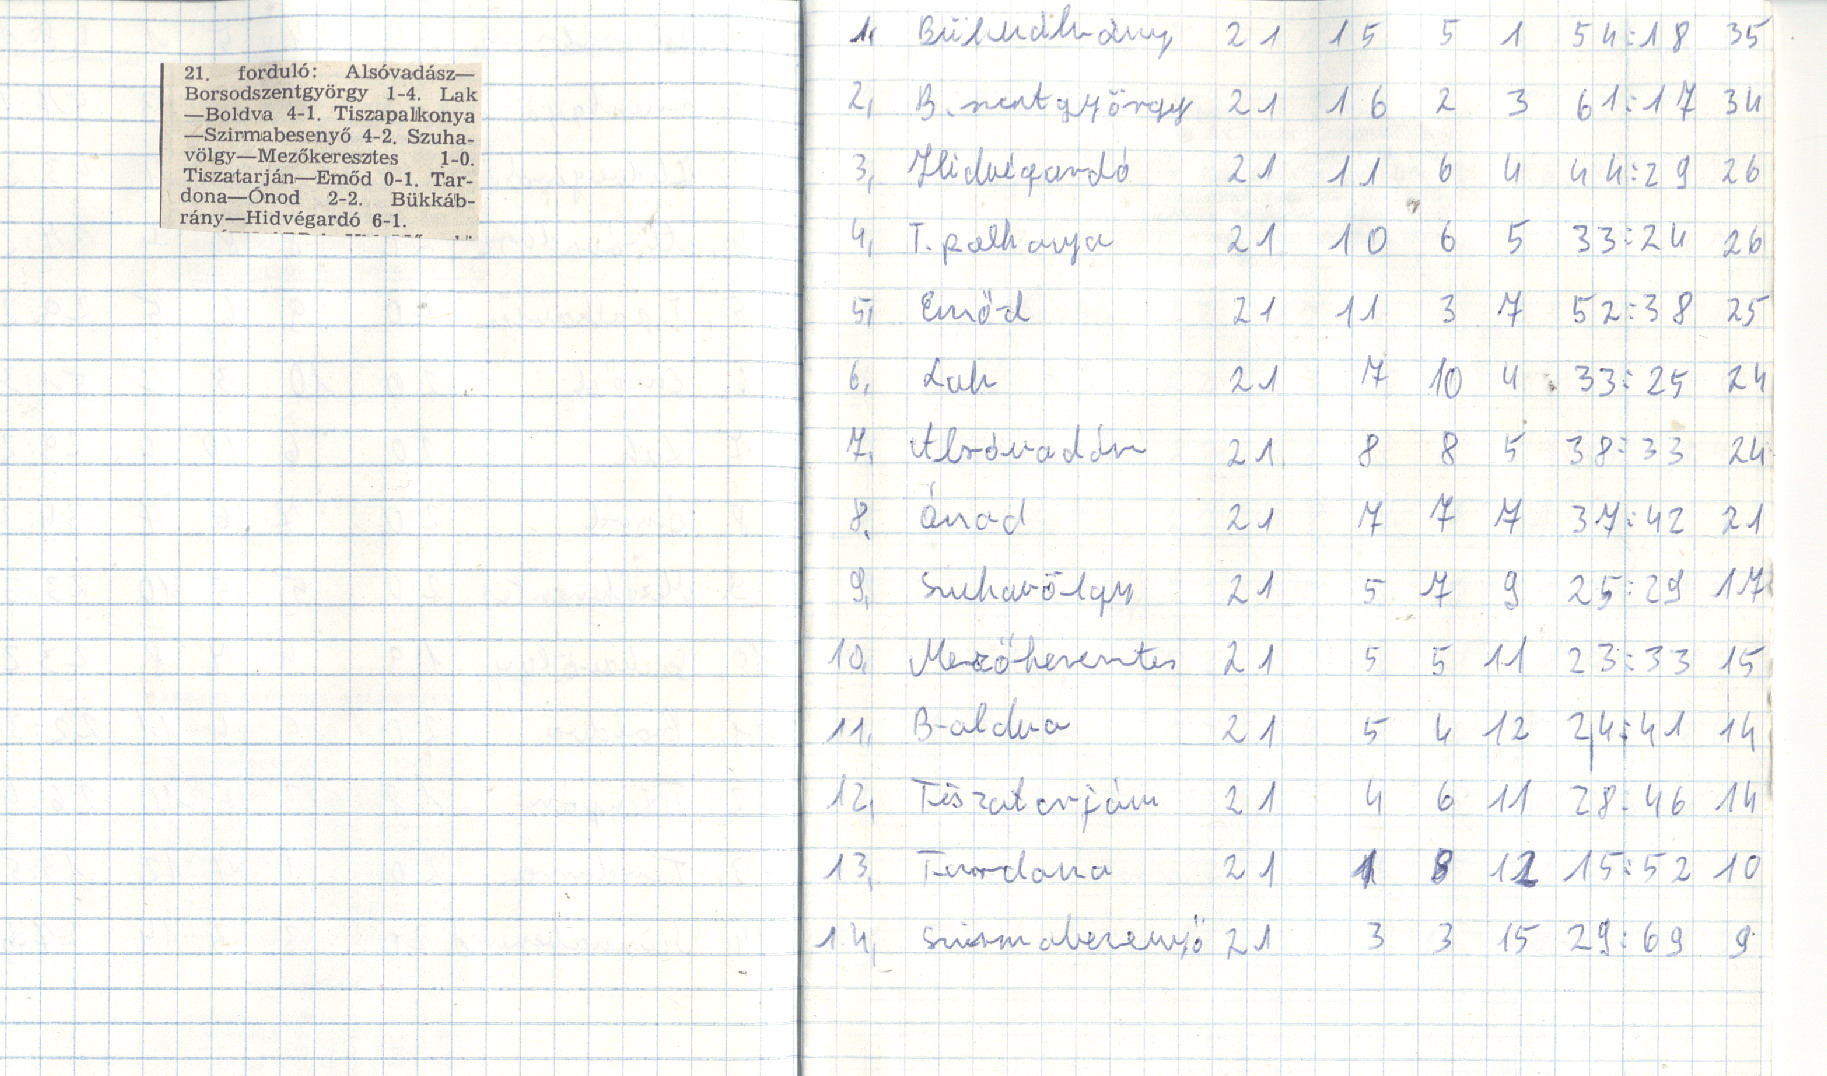 21. forduló: Alsóvadász—
Borsodszentgyörgy 1-4. Lak
—Boldva 4-1. Tiszapalkonya
—Szirmabesenyő 4-2. Szuha-
völgy—Mezőkeresztes 1-0.
Tiszatarján—Emőd 0-1. Tar-
dona—Ónod 2-2. Bükkáb-
rány—Hidvégardó 6-1.
1, Bükkábrány 21 15 5 1 54:18 35
2, B.szentgyörgy 21 16 2 3 61:17 34
3, Hidvégardó 21 11 6 4 44:29 26
4, T.palkonya 21 10 6 5 33:24 26
5, Emőd 21 11 3 7 52:38 25
6, Lak 21 7 10 4 33:25 24
7, Alsóvadász 21 8 8 5 38:33 24
8, Ónod 21 7 7 7 37:42 21
9, Szuhavölgy 21 5 7 9 25:29 17
10, Mezőkeresztes 21 5 5 11 23:33 15
11, Boldva 21 5 4 12 24:41 14
12, Tiszatarján 21 4 6 11 28:46 14
13, Tardona 21 1 8 12 15:52 10
14, Szirmabesenyő 21 3 3 15 29:69 9